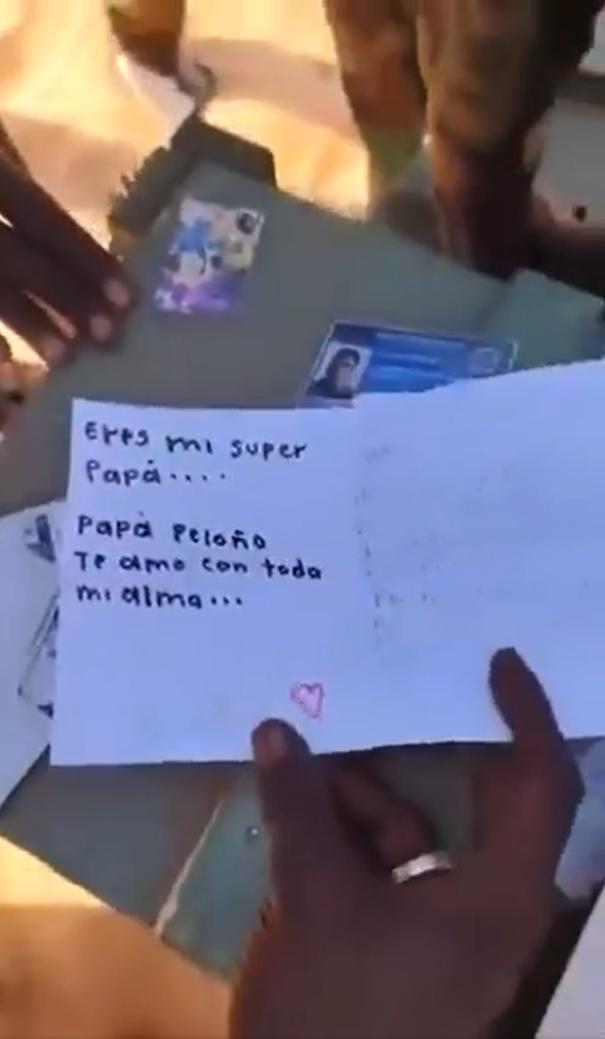 Eres mi super
Papá....
Papá Peloño
Te amo con toda
mi alma...